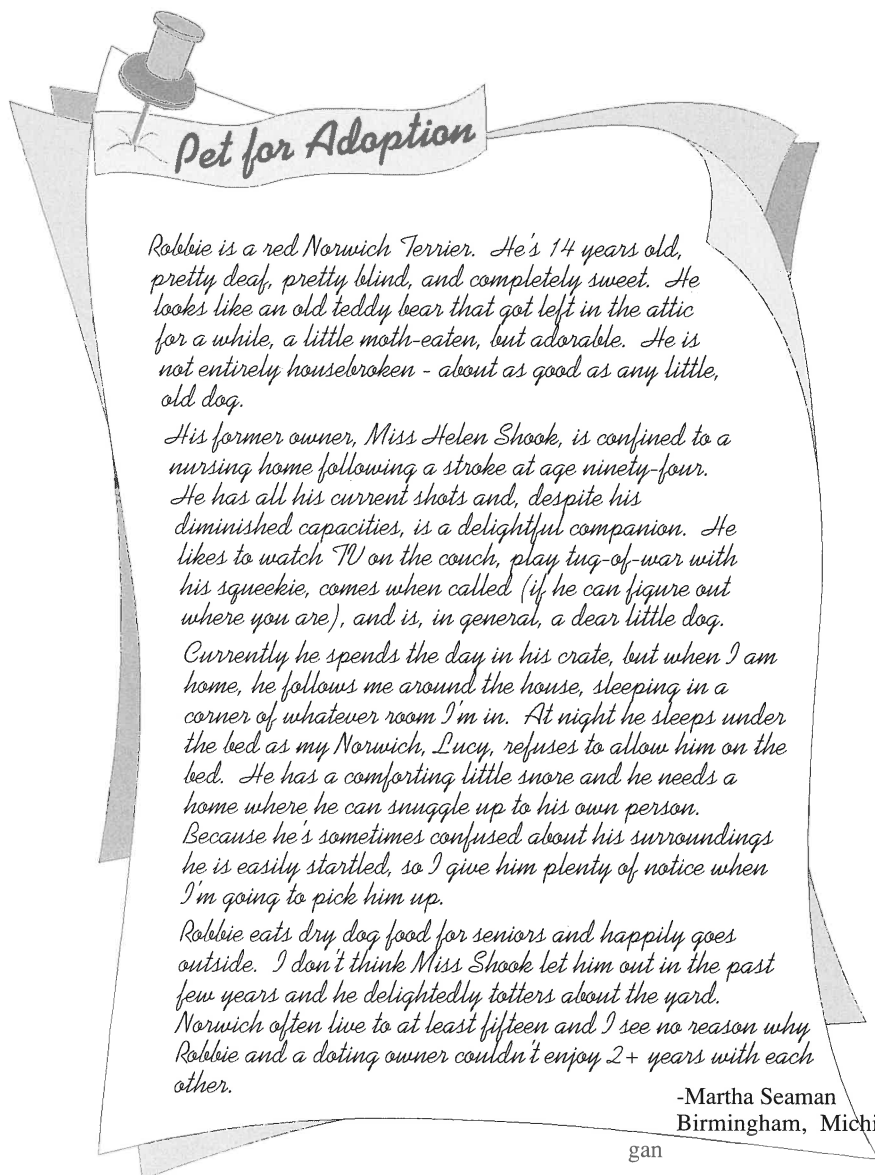 Pet for Adoption
Robbie is a red Norwich Terrier. He's 14 years old,
pretty deaf, pretty blind, and completely sweet. He
looks like an old teddy bear that got left in the attic
for a while, a little moth-eaten, but adorable. He is
not entirely housebroken - about as good as any little,
old dog.
His former owner, Miss Helen Shook, is confined to a
nursing home following a stroke at age ninety-four.
He has all his current shots and, despite his
diminished capacities, is a delightful companion. He
likes to watch TV on the couch, play tug-of-war with
his squeekie, comes when called (if he can figure out
where you are), and is, in general, a dear little dog.
Currently he spends the day in his crate, but when I am
home, he follows me around the house, sleeping in a
corner of whatever room I'm in. At night he sleeps under
the bed as my Norwich, Lucy, refuses to allow him on the
bed. He has a comforting little snore and he needs a
home where he can snuggle up to his own person.
Because he's sometimes confused about his surroundings
he is easily startled, so I give him plenty of notice when
I'm going to pick him up.
Robbie eats dry dog food for seniors and happily goes
outside. I don't think Miss Shook let him out in the past
few years and he delightedly totters about the yard.
Norwich often live to at least fifteen and I see no reason why
Robbie and a doting owner couldn't enjoy 2+ years with each
other.
-Martha Seaman
Birmingham, Michi
gan